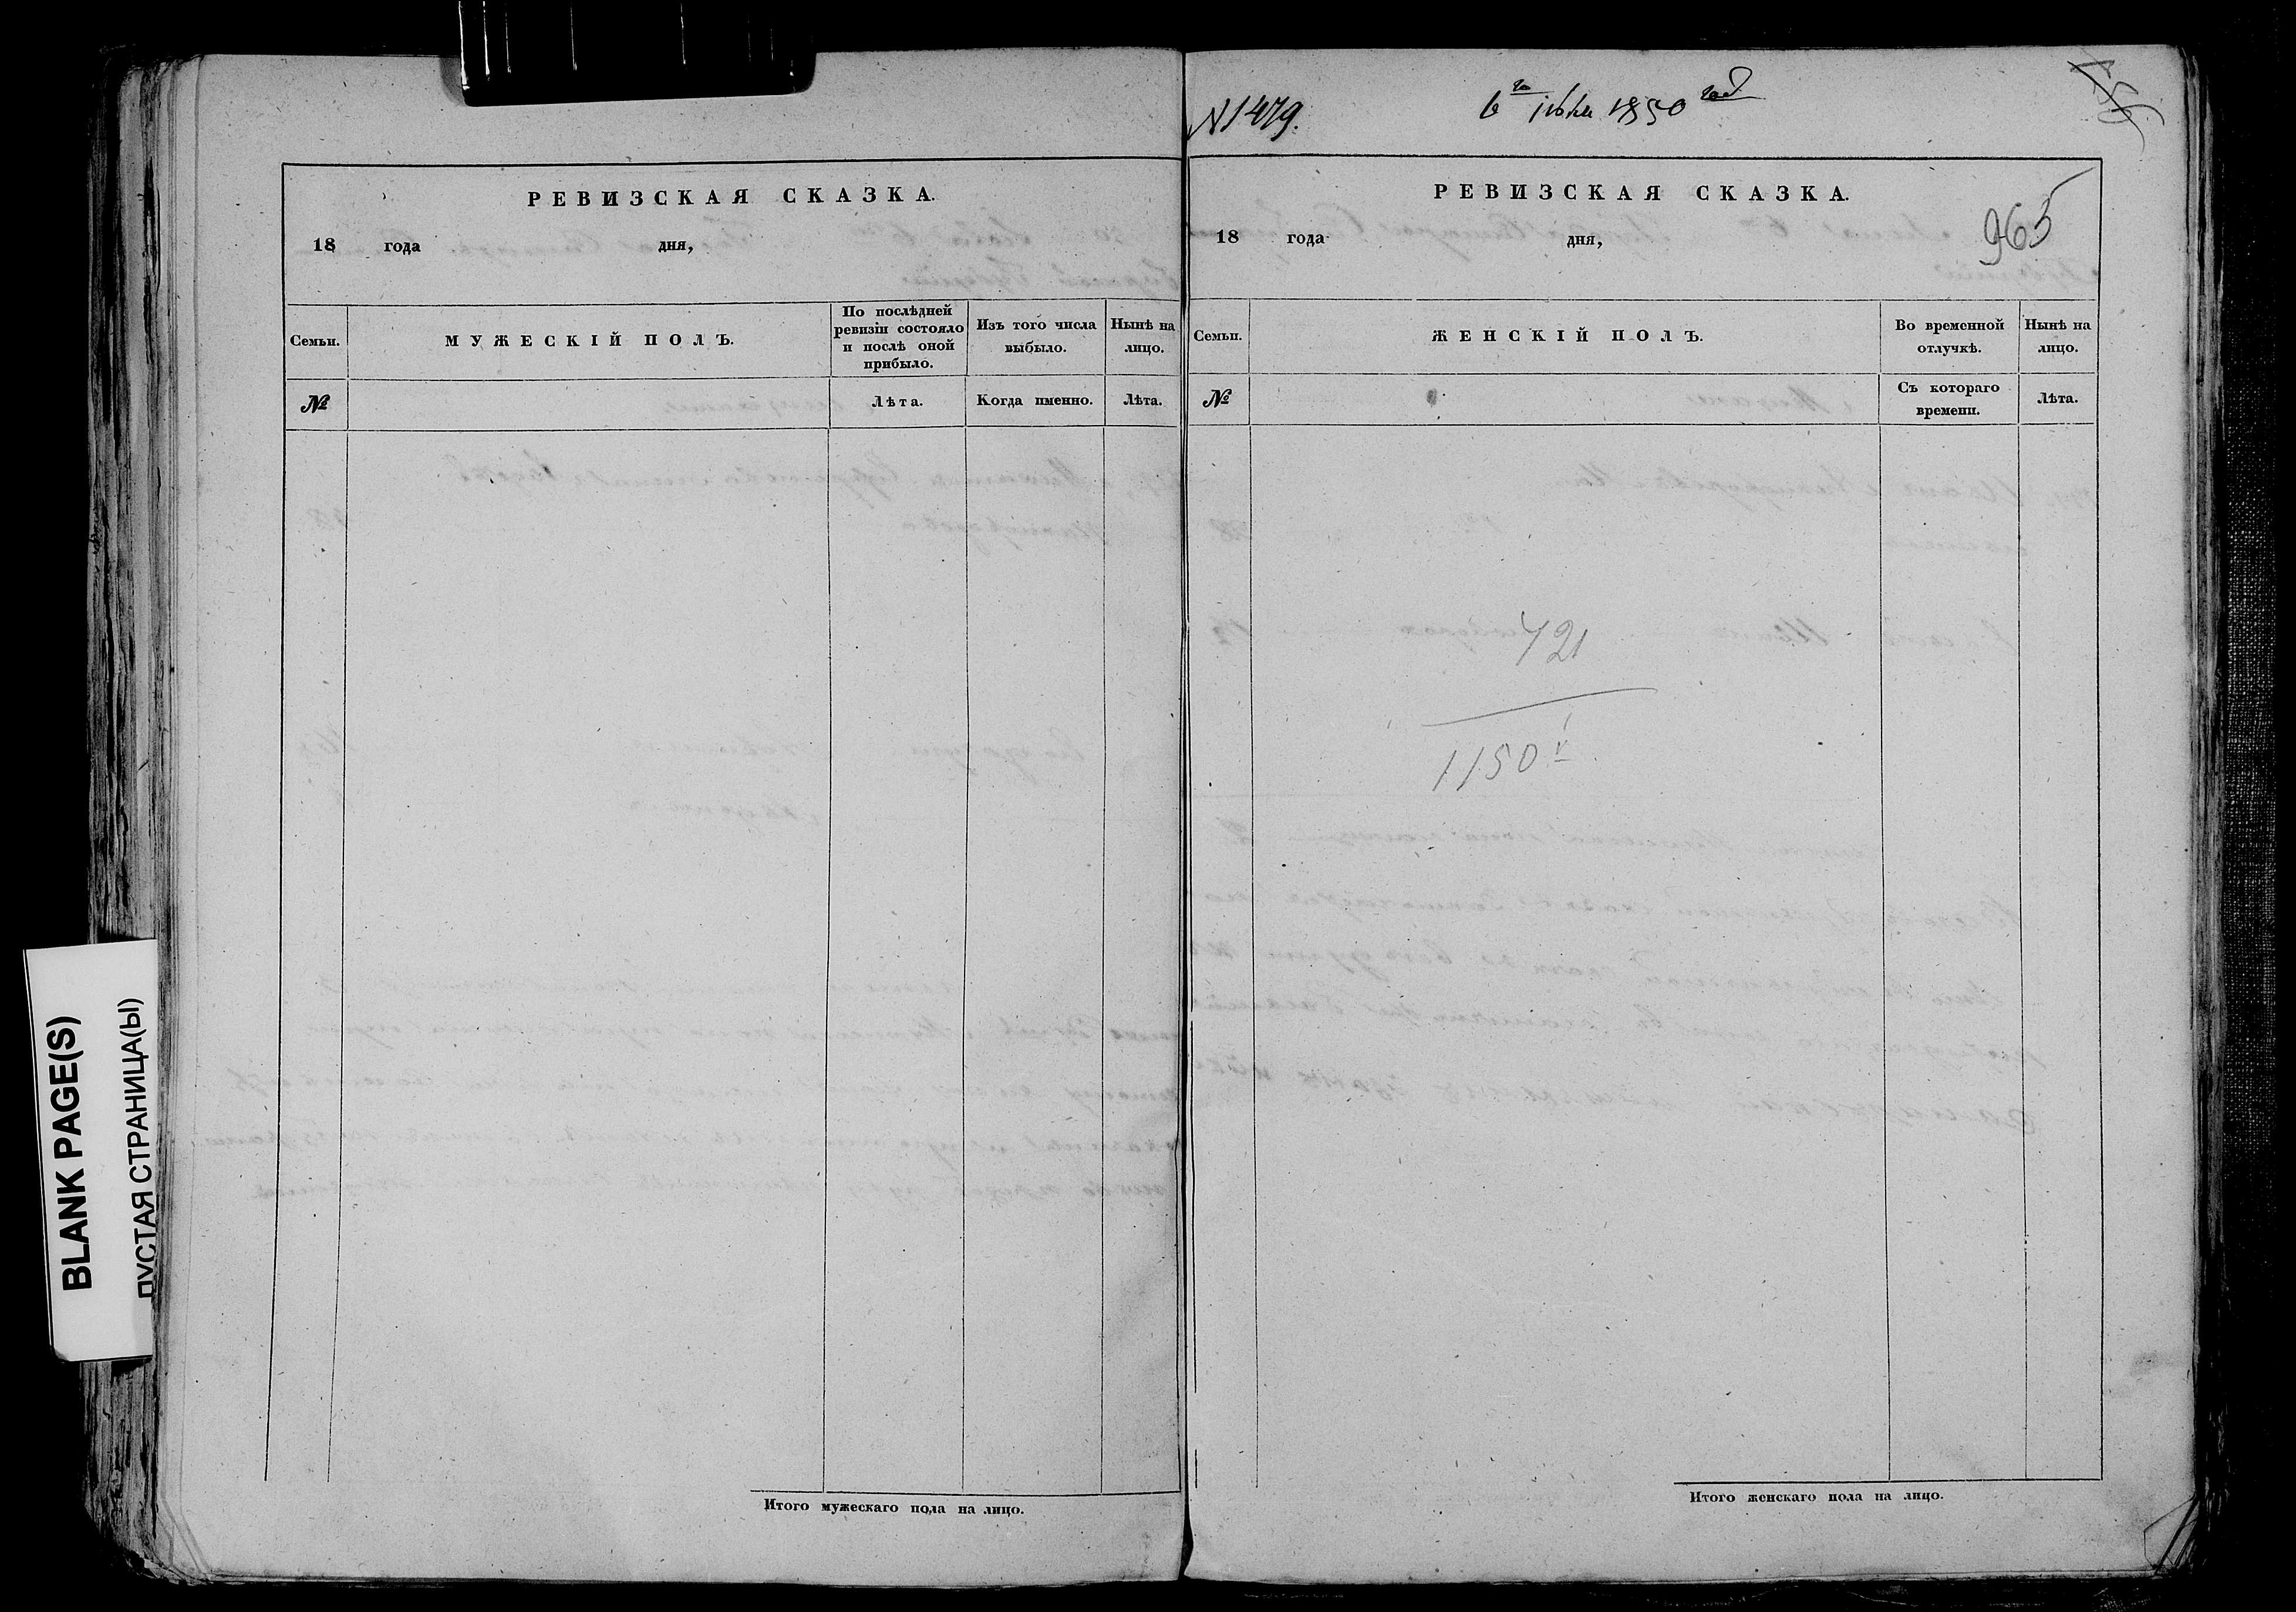 N 1479.
6го іюля 1850 год
РЕВИЗСКАЯ СКАЗКА.
18 года дня,
Семьи.
МУЖЕСКІЙ ПОЛЪ.
По послѣдней
ревизіи состояло
и послѣ оной
прибыло.
Изъ того числа
выбыло.
Нынѣ на
лицо.
№
Лѣта.
Когда именно.
Лѣта.
Итого мужескаго пола на лицо.
РЕВИЗСКАЯ СКАЗКА.
965
18 года дня,
Семьи.
ЖЕНСКІЙ ПОЛЪ.
Во временной
отлучкѣ.
Нынѣ на
лицо.
№
Съ котораго
времени.
Лѣта.
421
1150
Итого женскаго пола на лицо.
BLANK PAGE(S)
ПУСТАЯ СТРАНИЦА(Ы)